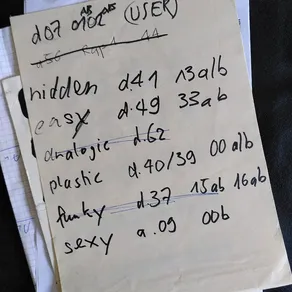 d07 0102 (USER)
hidden d.41 13alb
easy d.49 33ab
analogic d.62
plastic d.40/39 00 alb
funky d.37 15ab 16ab
sexy a.09 00b